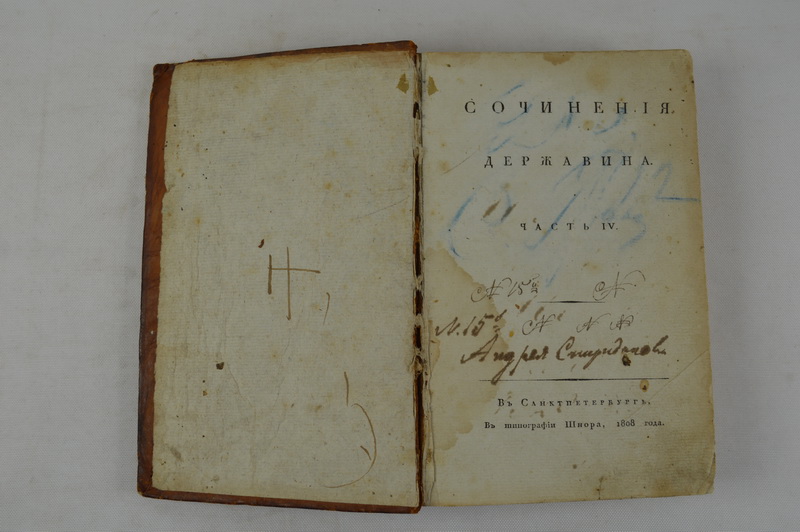 СОЧИНЕНІЯ.
ДЕРЖАВИНА.
ЧАСТЬ IV.
N 15 N
N. 15 N N N
Андрея Спиридонов
Въ Санктпетербургѣ,
Въ типографіи Шнора, 1808 года.